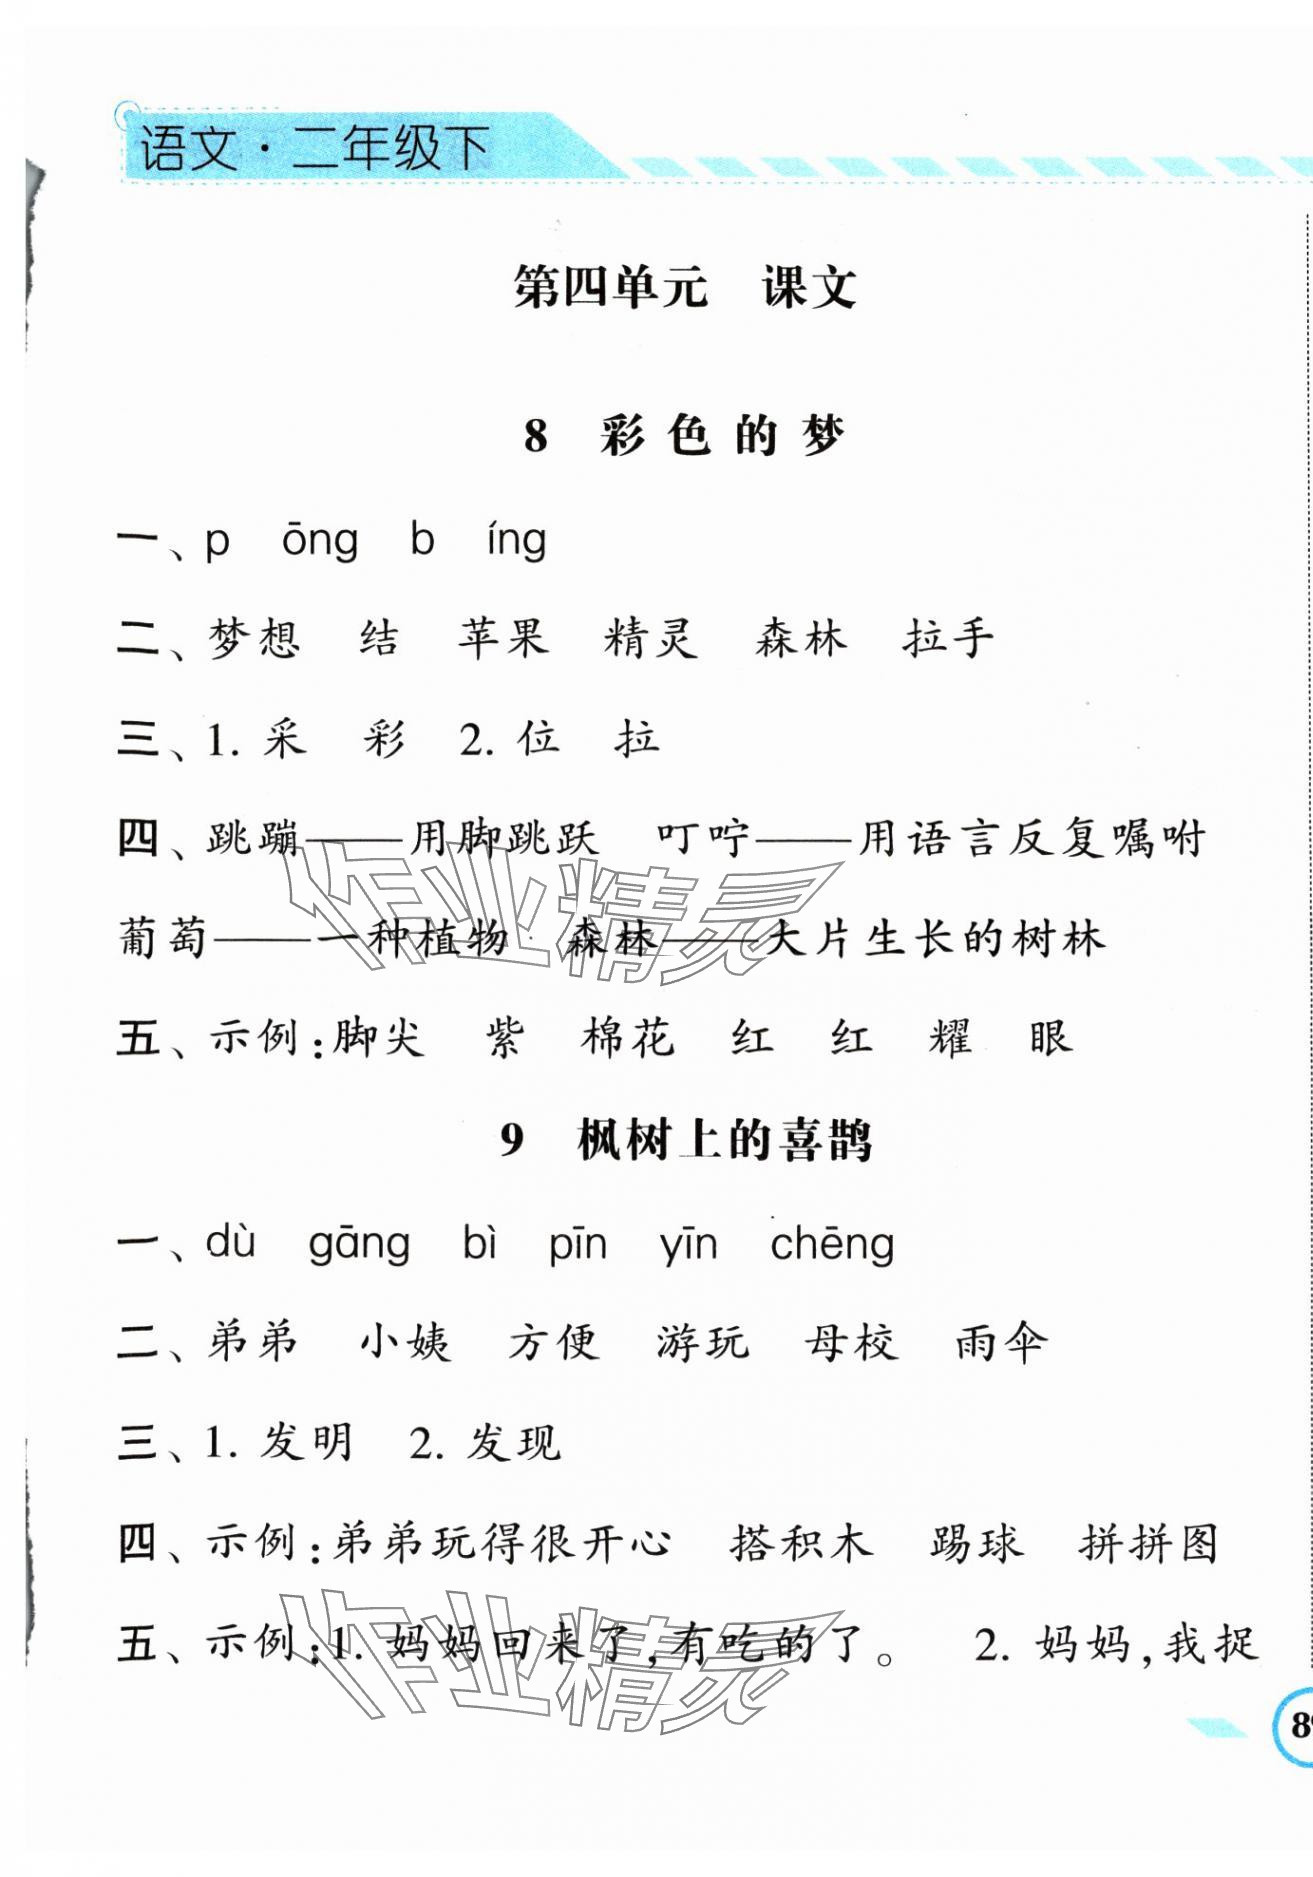 语文·二年级下
第四单元 课文
8 彩色的梦
一、p ōng b íng
二、梦想 结 苹果 精灵 森林 拉手
三、1. 采 彩 2. 位 拉
四、跳蹦——用脚跳跃 叮咛——用语言反复嘱咐
葡萄——一种植物 森林——大片生长的树林
五、示例:脚尖 紫 棉花 红 红 耀 眼
9 枫树上的喜鹊
一、dù gāng bì pīn yīn chēng
二、弟弟 小姨 方便 游玩 母校 雨伞
三、1. 发明 2. 发现
四、示例:弟弟玩得很开心 搭积木 踢球 拼拼图
五、示例:1. 妈妈回来了,有吃的了。 2. 妈妈,我捉
作业精灵
作业精灵